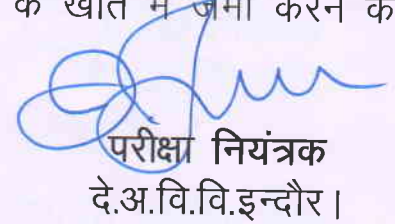 के खाते में जमा करने क
परीक्षा नियंत्रक
दे.अ.वि.वि.इन्दौर।